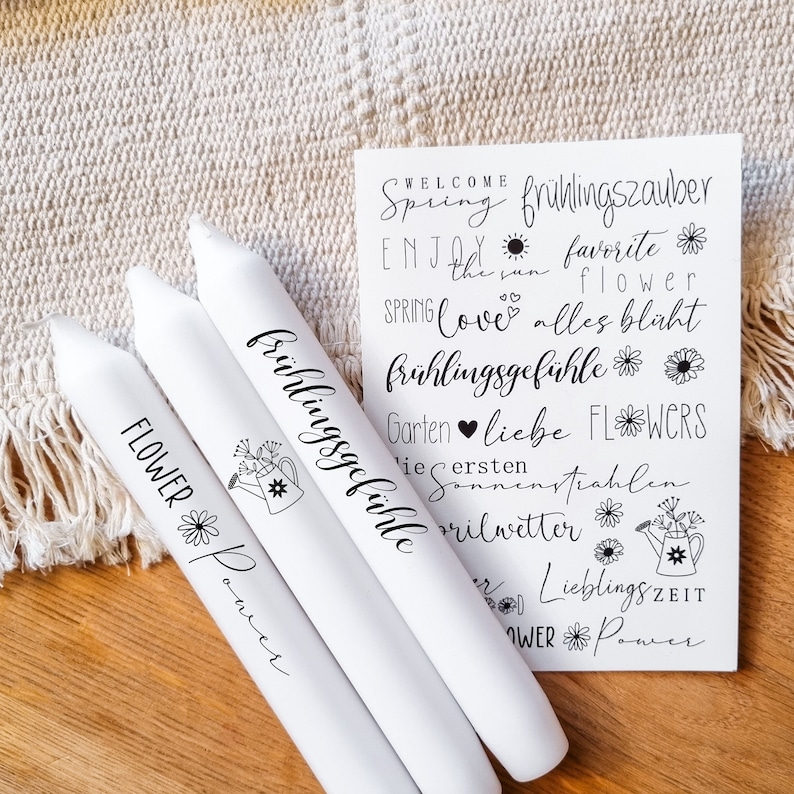 FLOWER
Power
frühlingsgefühle
WELCOME
Spring
frühlingszauber
ENJOY
the sun
favorite
flower
SPRING love
alles blüht
frühlingsgefühle
Garten liebe
FLOWERS
ersten
Sonnenstrahlen
Lieblings ZEIT
Power